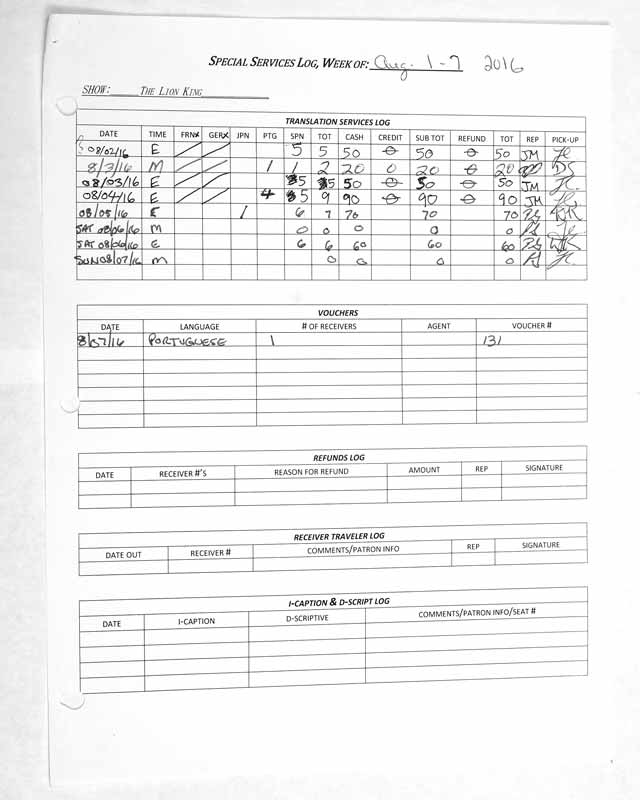 SPECIAL SERVICES LOG, WEEK OF: Aug. 1-7 2016
SHOW: THE LION KING
TRANSLATION SERVICES LOG
DATE TIME FRN GER JPN PTG SPN TOT CASH CREDIT SUB TOT REFUND TOT REP PICK-UP
08/02/16 E 5 5 50 0 50 0 50 JM
8/3/16 M 1 1 2 20 0 20 0 20
08/03/16 E 5 5 50 0 50 0 50 JM
08/04/16 E 4 5 9 90 0 90 0 90 JM
08/05/16 E 1 6 7 70 70 70
SAT 08/06/16 M 0 0 0 0 0
SAT 08/06/16 E 6 6 60 60 60
SUN 08/07/16 M 0 0 0 0
VOUCHERS
DATE LANGUAGE # OF RECEIVERS AGENT VOUCHER #
8/07/16 PORTUGUESE 1 131
REFUNDS LOG
DATE RECEIVER #'S REASON FOR REFUND AMOUNT REP SIGNATURE
RECEIVER TRAVELER LOG
DATE OUT RECEIVER # COMMENTS/PATRON INFO REP SIGNATURE
I-CAPTION & D-SCRIPT LOG
DATE I-CAPTION D-SCRIPTIVE COMMENTS/PATRON INFO/SEAT #